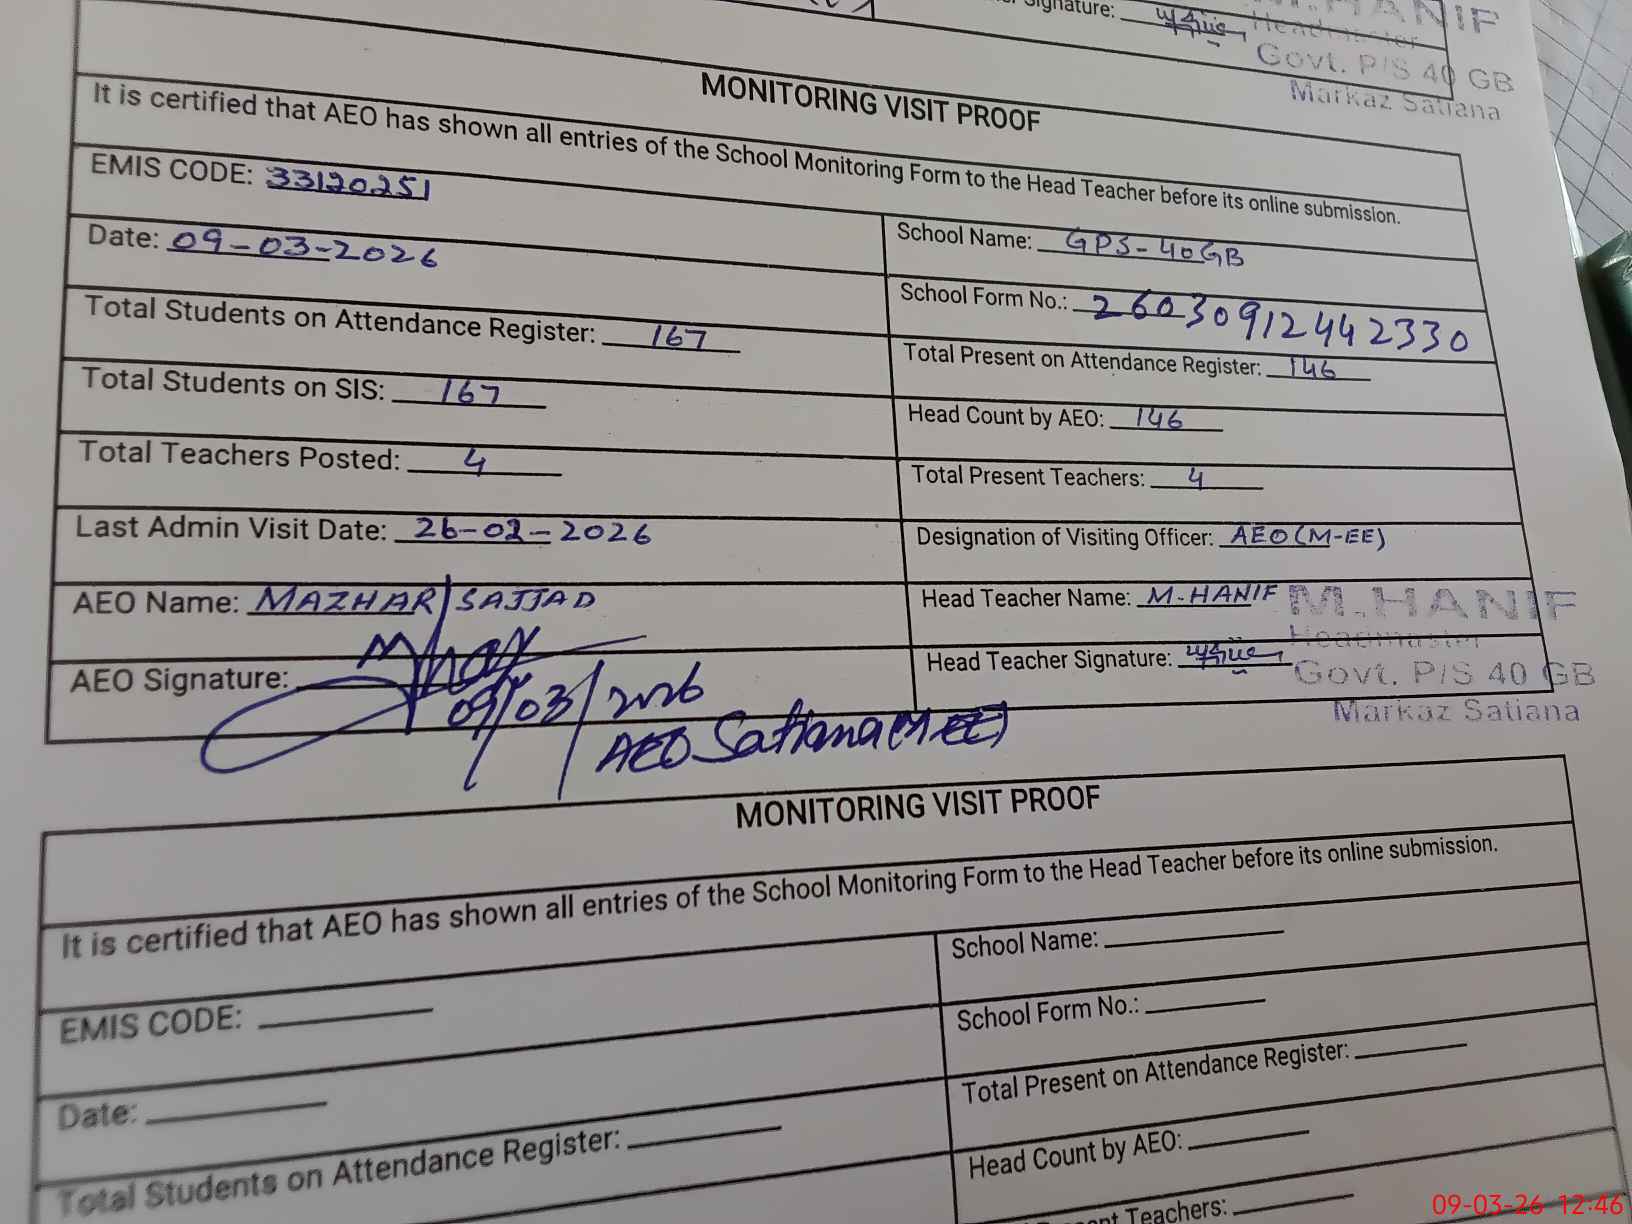 Signature:
M.HANIF
Headmaster
Govt. P/S 40 GB
Markaz Satiana
MONITORING VISIT PROOF
It is certified that AEO has shown all entries of the School Monitoring Form to the Head Teacher before its online submission.
EMIS CODE: 33120251
School Name: GPS-40GB
Date: 09-03-2026
School Form No.: 26030912442330
Total Students on Attendance Register: 167
Total Present on Attendance Register: 146
Total Students on SIS: 167
Head Count by AEO: 146
Total Teachers Posted: 4
Total Present Teachers: 4
Last Admin Visit Date: 26-02-2026
Designation of Visiting Officer: AEO(M-EE)
AEO Name: MAZHAR SAJJAD
Head Teacher Name: M-HANIF
M.HANIF
Headmaster
Govt. P/S 40 GB
Markaz Satiana
AEO Signature:
Head Teacher Signature:
09/03/2026
AEO Satiana (M-EE)
MONITORING VISIT PROOF
It is certified that AEO has shown all entries of the School Monitoring Form to the Head Teacher before its online submission.
EMIS CODE:
School Name:
Date:
School Form No.:
Total Students on Attendance Register:
Total Present on Attendance Register:
Head Count by AEO:
Teachers:
09-03-26 12:46